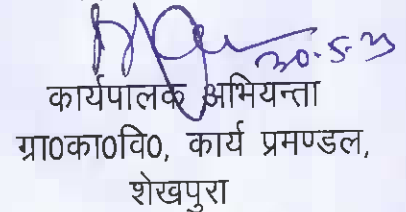 30.5.23
कार्यपालक अभियन्ता
ग्रा0का0वि0, कार्य प्रमण्डल,
शेखपुरा